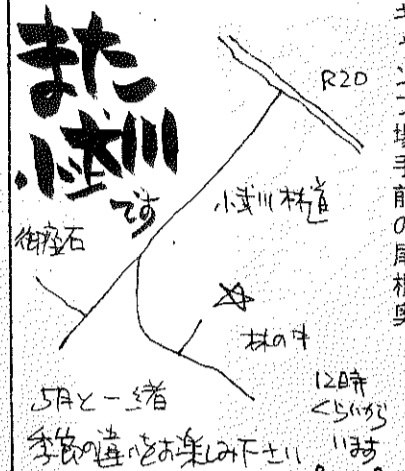 また
小武川
です
R20
小武川林道
御座石
林の中
5月と一緒
季節の違いをお楽しみ下さい
12時
くらいから
います
キャンプ場手前の尾根奥